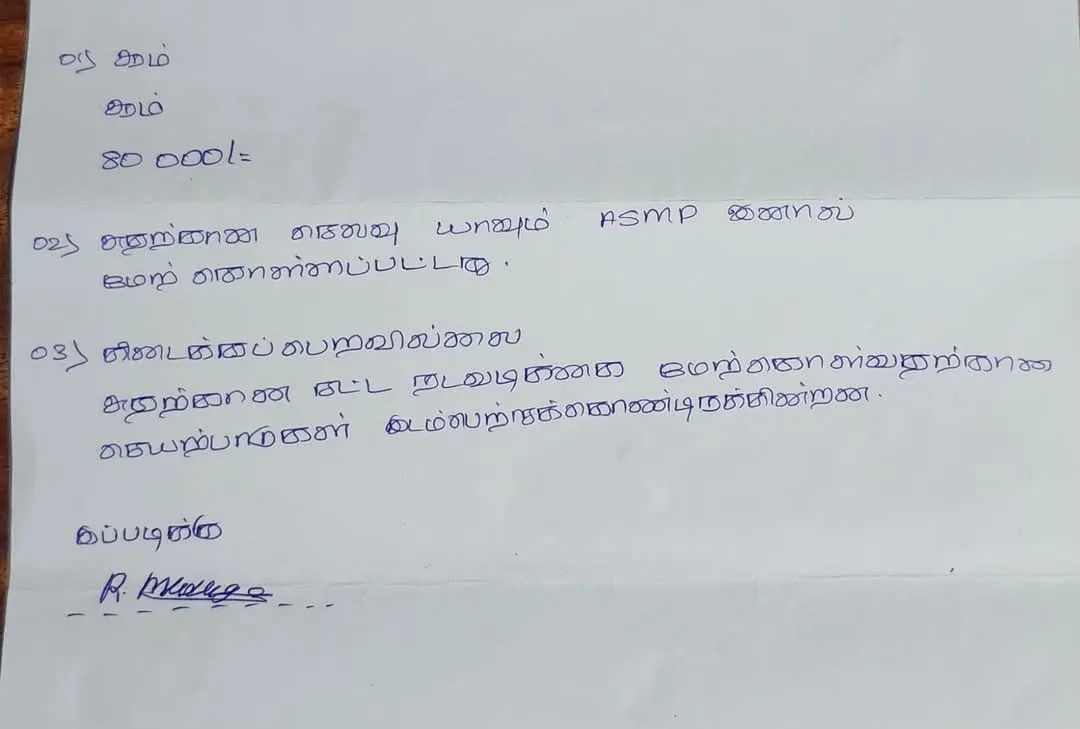 01) ஆம்
ஆம்
80 000/=
02) அதற்கான செலவு யாவும் ASMP இனால்
மேற் கொள்ளப்பட்டது.
03) கிடைக்கப் பெறவில்லை
அதற்கான சட்ட நடவடிக்கை மேற்கொள்வதற்கான
செயற்பாடுகள் இடம்பெற்றுக்கொண்டிருக்கின்றன.
இப்படிக்கு
R.